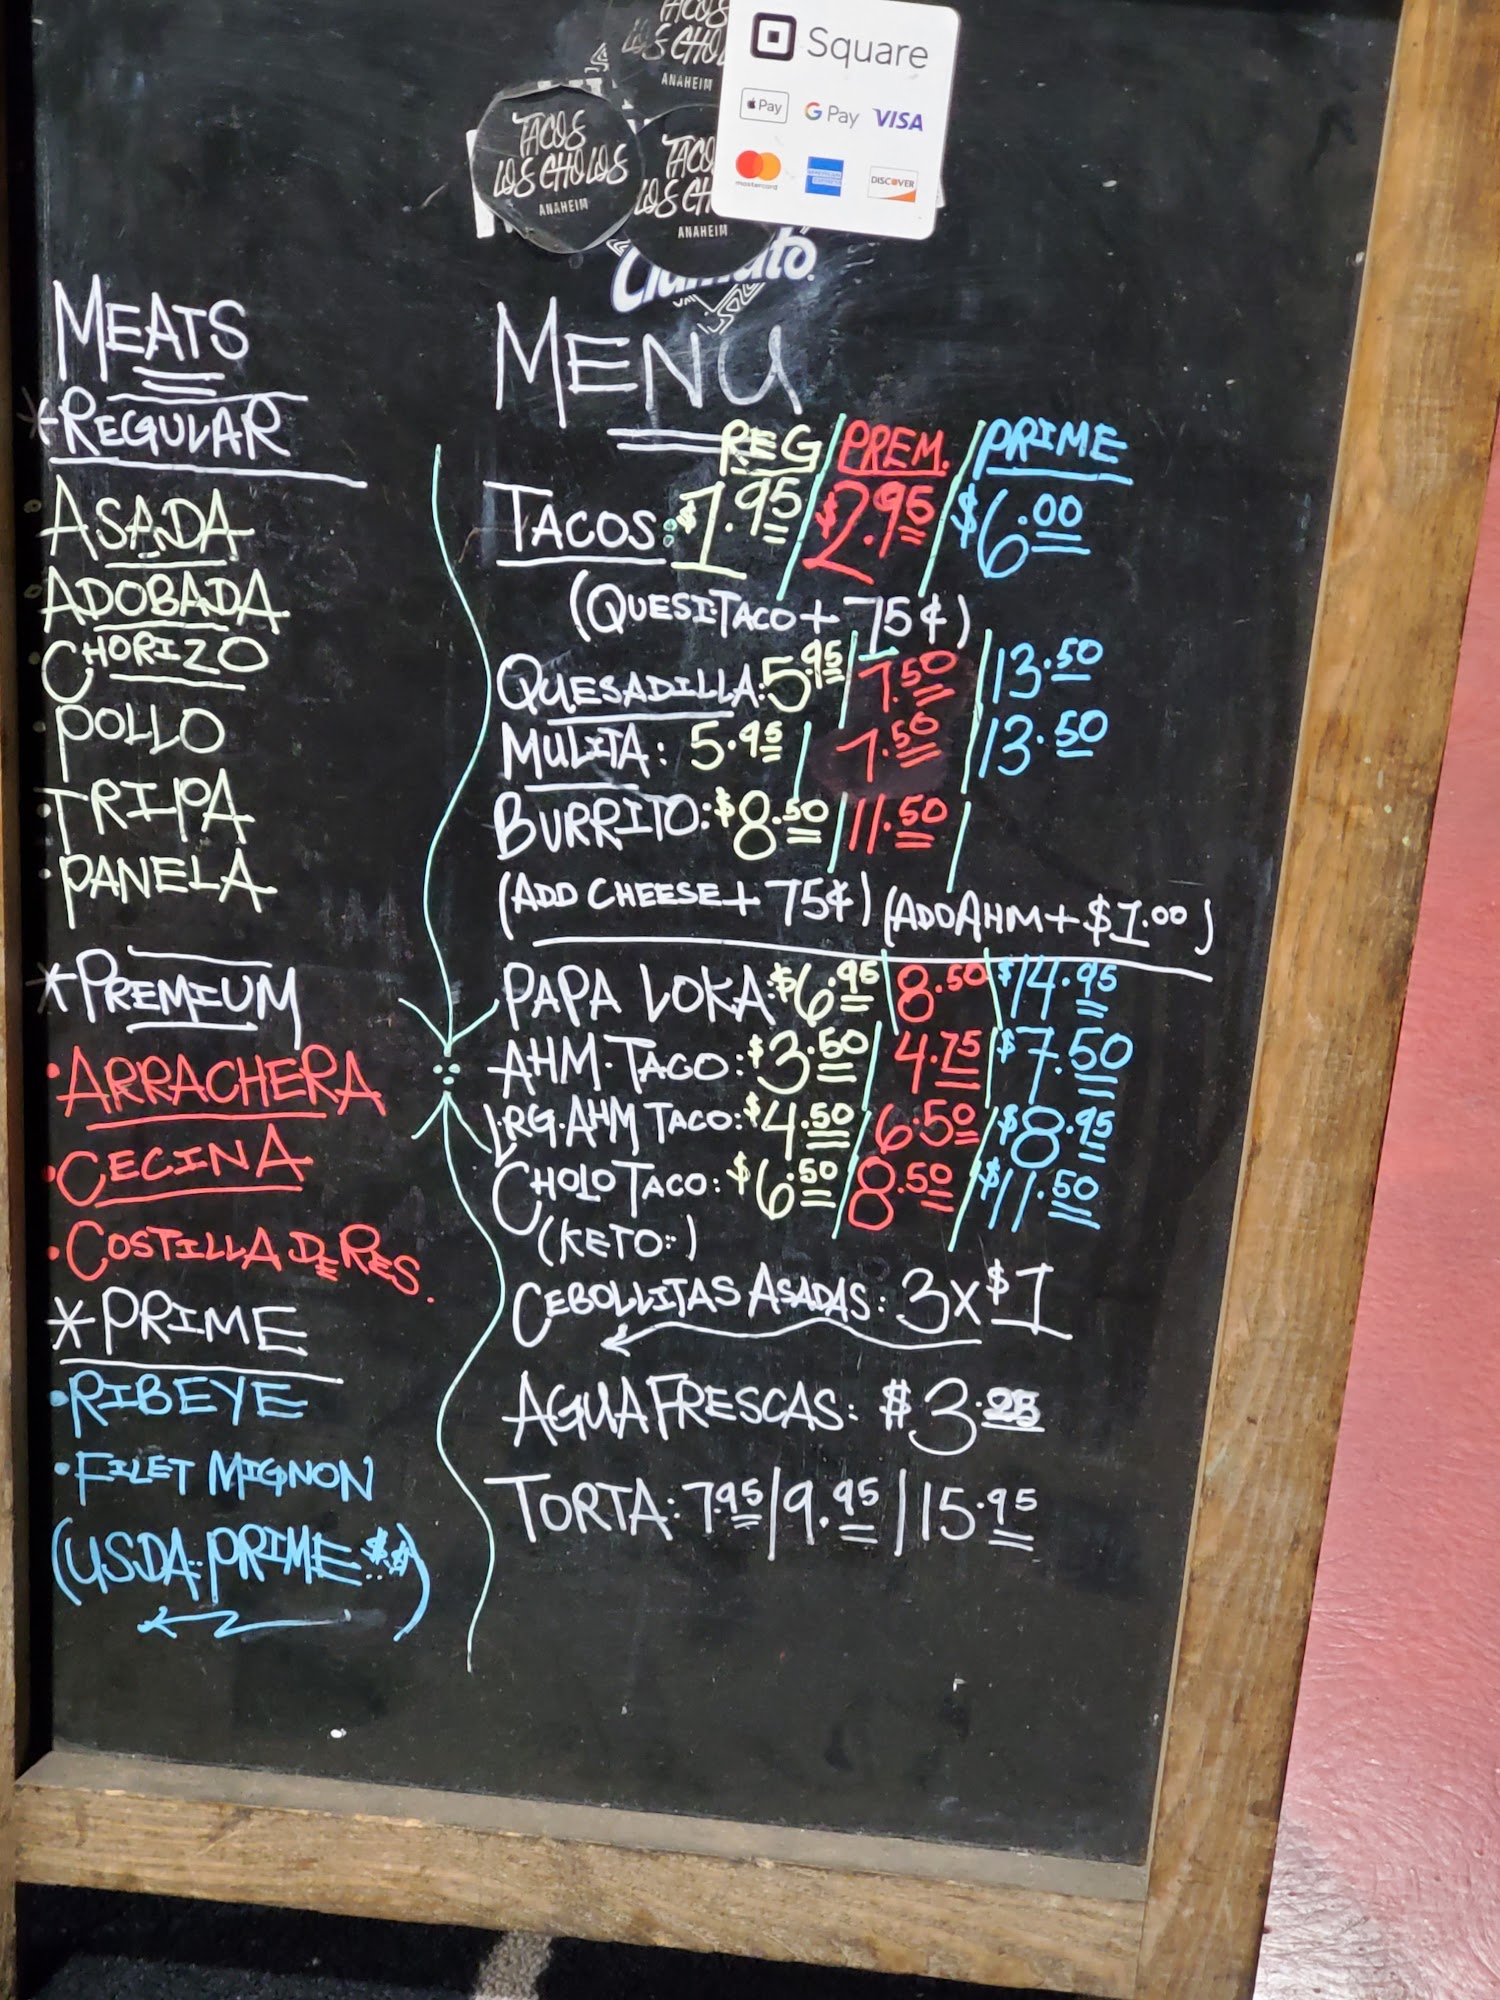 TACOS
LOS CHOLOS
ANAHEIM
TACOS
LOS CHOL
ANAHEIM
TACO
LOS CH
ANAHEIM
Square
Pay
G Pay
VISA
mastercard
AMERICAN EXPRESS
DISCOVER
Clamato.
MEATS
*REGULAR
• ASADA
• ADOBADA
• CHORIZO
• POLLO
• TRIPA
• PANELA
*PREMIUM
• ARRACHERA
• CECINA
• COSTILLA DE RES.
*PRIME
• RIBEYE
• FILET MIGNON
(USDA PRIME $$)
MENU
REG / PREM. / PRIME
TACOS: $1.95 / $2.95 / $6.00
(QUESI-TACO + 75¢)
QUESADILLA: 5.95 / 7.50 / 13.50
MULITA: 5.95 / 7.50 / 13.50
BURRITO: $8.50 / 11.50 /
(ADD CHEESE + 75¢) (ADD AHM + $1.00)
PAPA LOKA: $6.95 / 8.50 / $14.95
AHM.TACO: $3.50 / 4.75 / $7.50
LRG.AHM TACO: $4.50 / 6.50 / $8.95
CHOLO TACO: $6.50 / 8.50 / $11.50
(KETO:)
CEBOLLITAS ASADAS: 3x$1
AGUA FRESCAS: $3.25
TORTA: 7.95 / 9.95 / 15.95